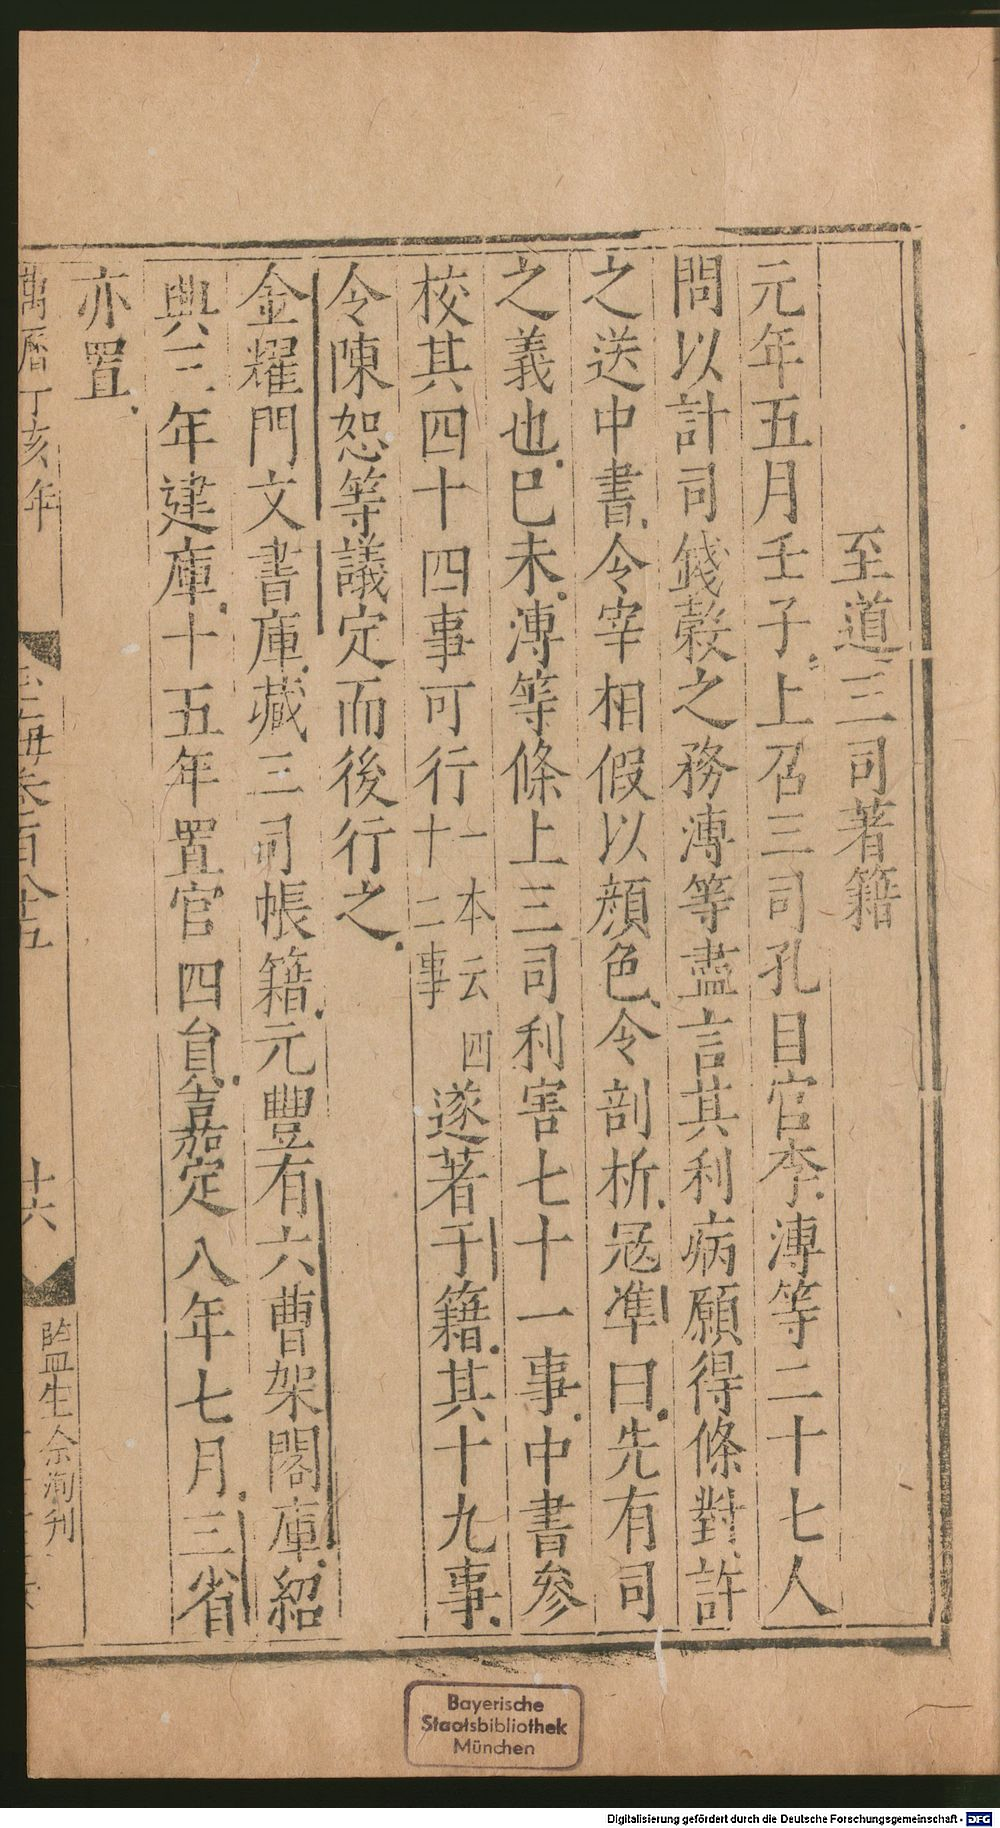 至道三司著籍
元年五月壬子上召三司孔目官李溥等二十七人
問以計司錢穀之務溥等盡言其利病願得條對許
之送中書令宰相假以顔色令剖析㓂凖曰先有司
之義也巳未溥等條上三司利害七十一事中書參
校其四十四事可行一本云四十二事遂著于籍其十九事
令陳恕等議定而後行之
金耀門文書庫藏三司帳籍元豐有六曹架閣庫紹
興三年建庫十五年置官四員嘉定八年七月三省
亦置
萬曆丁亥年
玉海卷一百八十五
十六
監生余洵刋
Bayerische
Staatsbibliothek
München
Digitalisierung gefördert durch die Deutsche Forschungsgemeinschaft - DFG